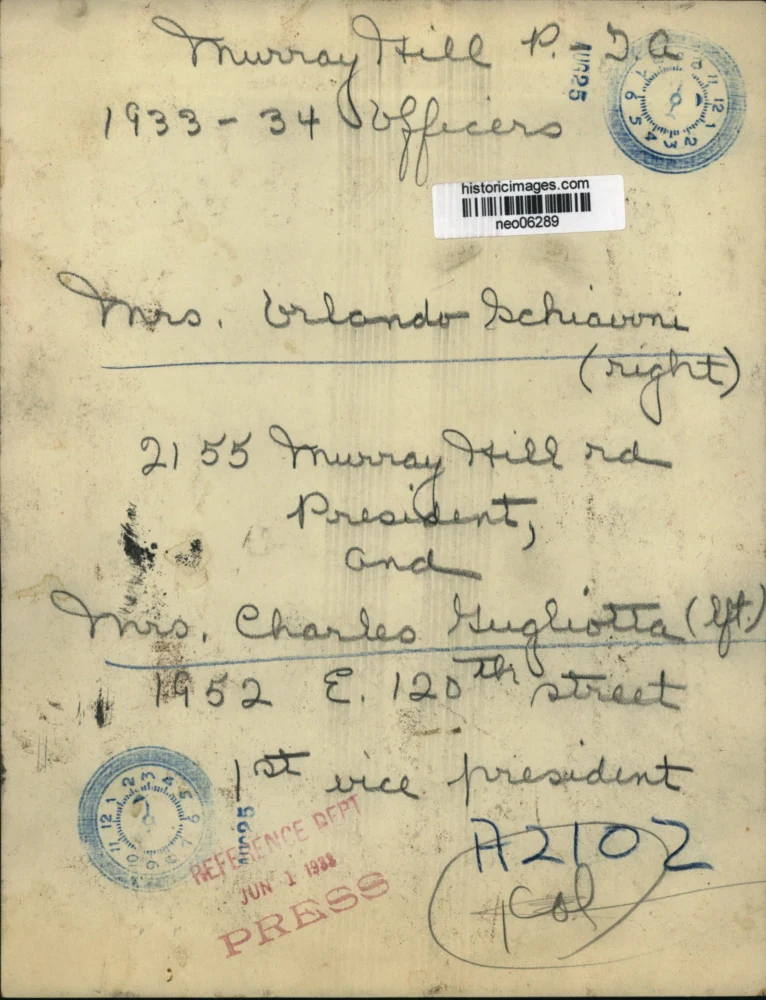 Murray Hill P. T. A
AUG 25
11 12 1 2 3 4 5 6 7
1933 - 34 Officers
historicimages.com
neo06289
Mrs. Orlando Schiavoni
(right)
2155 Murray Hill rd
President,
and
Mrs. Charles Gugliotta (lft.)
1952 E. 120th street
1st vice president
11 12 1 2 3 4 5 6 7 8 9 10
AUG 25
REFERENCE DEPT
JUN 1 1938
PRESS
A2102
1 Col